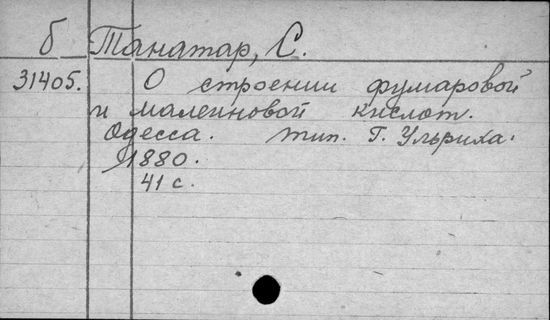 б Танатар, С.
31405. О строении фумаровой
и малеиновой кислот.
Одесса. тип. Г. Ульриха.
1880.
41 с.